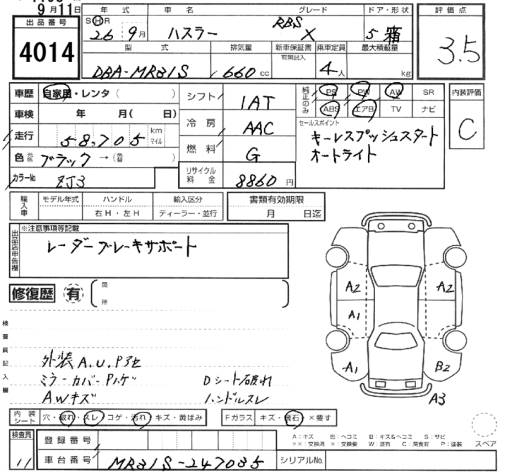 9月11日
出品番号
4014
年式 車名 グレード ドア・形状
SⒽR 26年9月 ハスラー RBS X 5 箱
型式 排気量 新車保証書 乗車定員 最大積載量
有期日込
DBA-MR31S 660cc 4人 kg
評価点
3.5
車歴 自家用・レンタ( )
車検 年 月( 日)
走行 58,705 km マイル
色 ブラック→( )
カラーNo ZJ3
シフト 1AT
冷房 AAC
燃料 G
リサイクル料金 8860円
純正のみ PS PW AW SR
ABS エアB TV ナビ
セールスポイント
キーレスプッシュスタート
オートライト
内装評価
C
輸入車 モデル年式 ハンドル 輸入区分
右H・左H ディーラー・並行
書類有効期限
月 日迄
出品店申告欄
※注意事項等記載
レーダーブレーキサポート
修復歴 有
箇所
検査員記入欄
外装A.U.P
ミラーカバーPハゲ Dシート破れ
AWキズ ハンドルスレ
A2 A2
A1
A1 B2
A3
内装シート 穴・破れ・スレ・コゲ・汚れ・キズ・黄ばみ
Fガラス キズ・飛石・×要す
検査員
11
登録番号
車台番号 MR31S-247035 シリアルNo.
A:キズ U:ヘコミ B:キズ&ヘコミ S:サビ
スペア